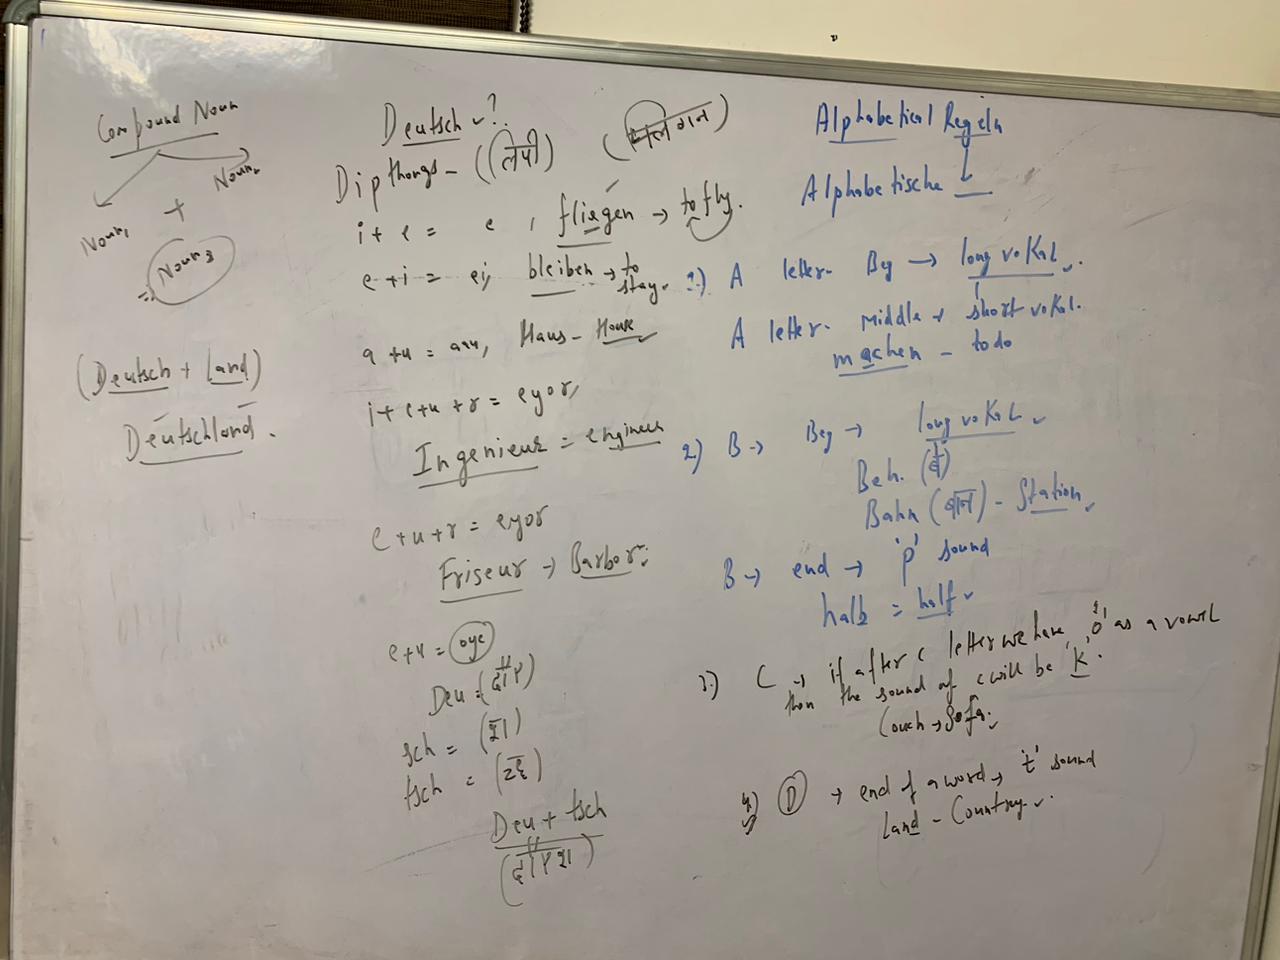 Compound Noun
Noun1 + Noun2
= Noun3
(Deutsch + Land)
Deutschland.
Deutsch ?
Dipthongs - ((लेपी)
i + e = e, fliegen → to fly.
e + i = ei, bleiben → to stay.
a + u = aau, Haus - House
i + e + u + r = eyor,
Ingenieur = engineer
e + u + r = eyor
Friseur → Barbor.
e + u = oye
Deu =
sch =
tsch =
Deu + tsch
Alphabetical Regeln
Alphabetische
1.) A letter - Beg → long voKaL.
A letter - Middle → short voKal.
machen - to do
2) B → Beg → long voKaL
Beh.
Bahn (बान) - Station
B → end → 'p' sound
halb = half
3.) C → if after c letter we have 'o' as a vowel
then the sound of c will be 'K'.
Couch → Sofa.
4) D → end of a word → 't' sound
Land - Country.